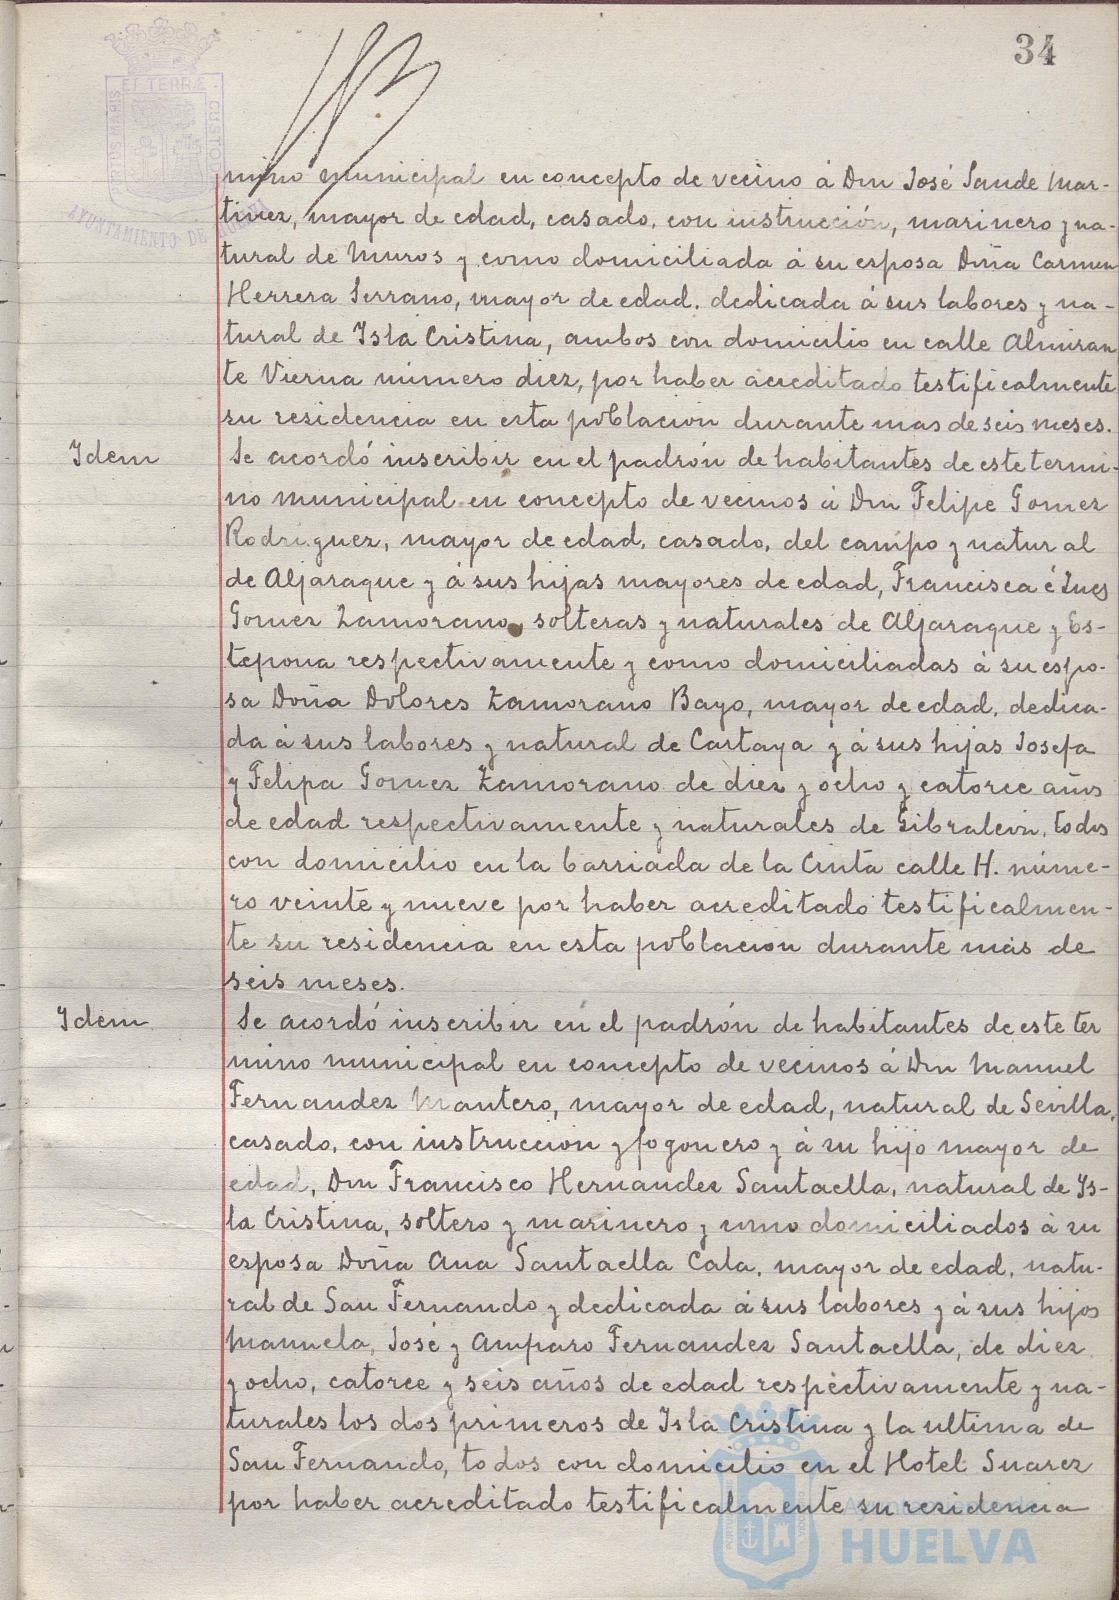 34
ET TERRÆ
PORTUS MARIS
CUSTODIA
AYUNTAMIENTO DE HUELVA
mino municipal en concepto de vecino á Don José Sande Mar-
tinez, mayor de edad, casado, con instrucción, marinero y na-
tural de Muros y como domiciliada á su esposa Doña Carmen
Herrera Serrano, mayor de edad, dedicada á sus labores y na-
tural de Isla Cristina, ambos con domicilio en calle Almiran
te Vierna número diez, por haber acreditado testificalmente
su residencia en esta poblacion durante mas de seis meses.
Idem
Se acordó inscribir en el padrón de habitantes de este termi-
no municipal en concepto de vecinos á Don Felipe Gomez
Rodriguez, mayor de edad, casado, del campo y natural
de Aljaraque y á sus hijas mayores de edad, Francisca é Ines
Gomez Zamorano, solteras y naturales de Aljaraque y Es-
tepona respectivamente y como domiciliadas á su espo-
sa Doña Dolores Zamorano Bayo, mayor de edad, dedica-
da á sus labores y natural de Cartaya y á sus hijas Josefa
y Felipa Gomez Zamorano de diez y ocho y catorce años
de edad respectivamente y naturales de Gibraleon, todos
con domicilio en la barriada de la Cinta calle H. núme-
ro veinte y nueve por haber acreditado testificalmen-
te su residencia en esta poblacion durante más de
seis meses.
Idem
Se acordó inscribir en el padrón de habitantes de este ter
mino municipal en concepto de vecinos á Don Manuel
Fernandez Mantero, mayor de edad, natural de Sevilla,
casado, con instruccion y fogonero y á su hijo mayor de
edad, Don Francisco Hernandez Santaella, natural de Ys-
la Cristina, soltero y marinero y como domiciliados á su
esposa Doña Ana Santaella Cala, mayor de edad, natu-
ral de San Fernando y dedicada á sus labores y á sus hijos
Manuela, José y Amparo Fernandez Santaella, de diez
y ocho, catorce y seis años de edad respectivamente y na-
turales los dos primeros de Isla Cristina y la ultima de
San Fernando, todos con domicilio en el Hotel Suarez
por haber acreditado testificalmente su residencia
Ayuntamiento de
HUELVA